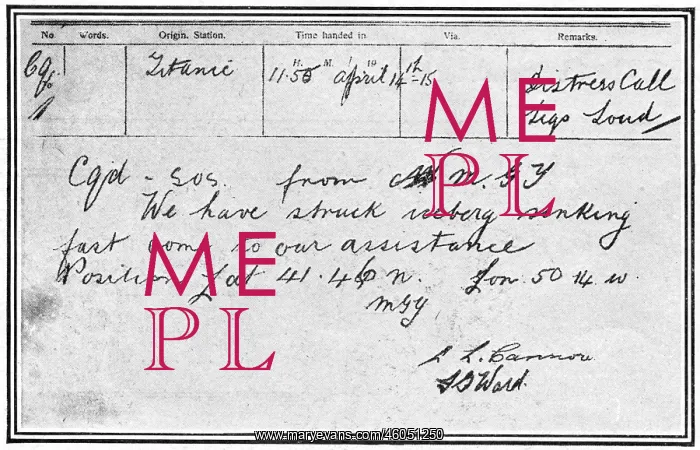 No. Words. Origin. Station. Time handed in Via. Remarks.
H. M. 19
Cqd Titanic 11.55 April 14th-15 Distress Call
1 Sigs Loud
Cqd - SOS. from M.G.Y
We have struck iceberg sinking
fast come to our assistance
Position Lat 41.46 n. Lon. 50 14 w
MGY
L. Cannon
S G Ward.
ME
PL
ME
PL
www.maryevans.com/46051250